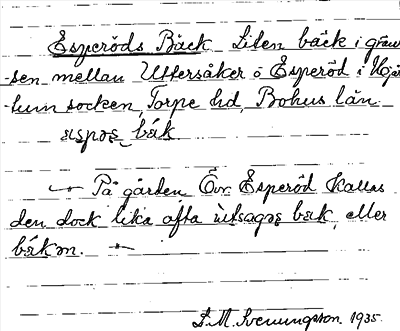 Esperöds Bäck Liten bäck i grän-
sen mellan Uttersåker o Esperöd i Hjär-
tum socken, Torpe hd, Bohus län
bäk.
På gården Övr. Esperöd kallas
den dock lika ofta bæk, eller
bäkən.
D. M. Svenungson. 1935.